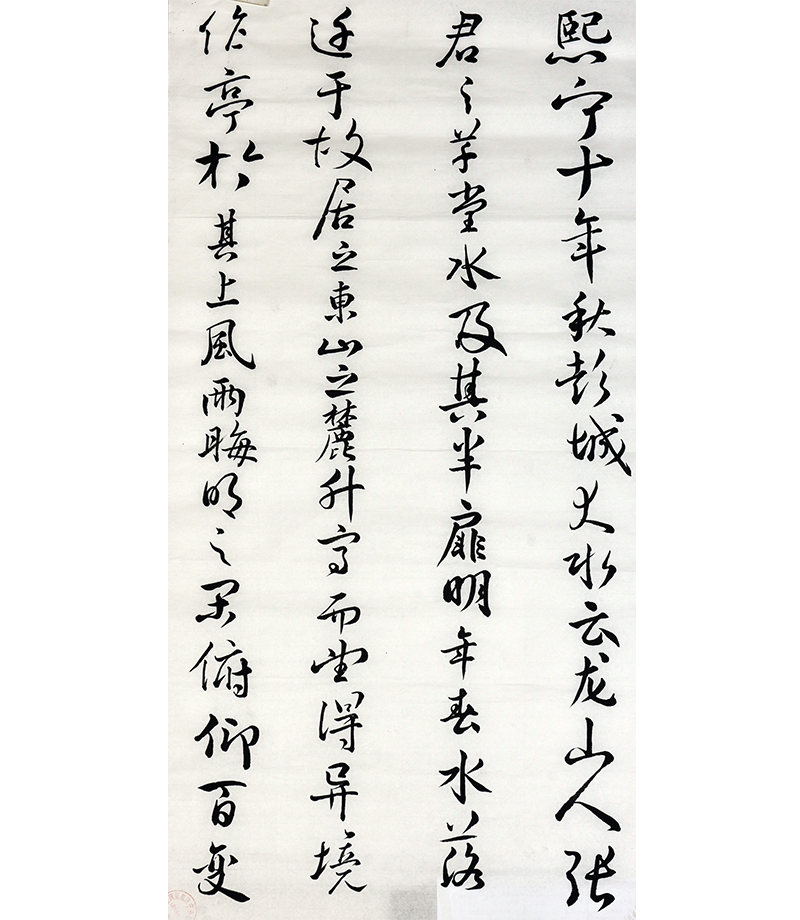 熙宁十年秋彭城大水云龙山人张
君之草堂水及其半扉明年春水落
迁于故居之東山之麓升高而望得异境
作亭於其上風雨晦明之间俯仰百变